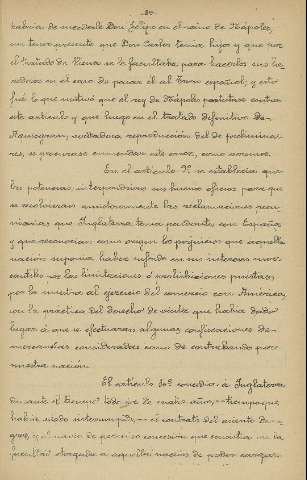 -80-
habria de sucederle Don Felipe en el reino de Nápoles,
no tenia presente que Don Carlos tenia hijos y que por
el tratado de Viena se le facultaba para hacerlos sus he-
rederos en el caso de pasar él al trono español; y esto
fué lo que motivó que el rey de Nápoles protestase contra
este articulo y que luego en el tratado definitivo de
Aquisgran, verdadera reproducción del de prelimina-
res, se procurase enmendar este error, como veremos.
En el articulo 9º se establecia que
las potencias interpondrian sus buenos oficios para que
se resolvieran amistosamente las reclamaciones pecu-
niarias que Inglaterra tenia pendientes con España,
y que reconocian como origen los perjuicios que aquella
nación suponia haber sufrido en sus intereses mer-
cantiles por las limitaciones ó prohibiciones puestas
por la nuestra al ejercicio del comercio con América,
con la práctica del derecho de visita que habia dado
lugar á que se efectuaran algunas confiscaciones de
mercancias consideradas como de contrabando por
nuestra nación.
El articulo 10º concedia á Inglaterra
durante el tiempo de años, - tiempo que
habia sido interrumpido, - el contrato del asiento de ne-
gros, y el navio de permiso concesión que consistia en la
facultad otorgada á aquella nación de poder cargar